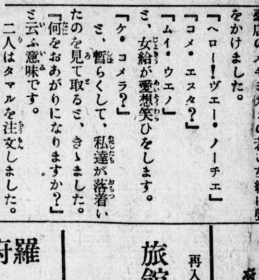 をかけました。
『ヘロー！ヴエー・ノーチエ』
『コメ・エスタ？』
『ムイ・ウエノ』
と、女給が愛想笑ひをします。
『ケ・コメラ？』
と、暫らくして、私達が落着い
たのを見て取ると、きゝました。
『何をおあがりになりますか？』
と云ふ意味です。
二人はタマルを注文しました。
再入
旅館
羅府